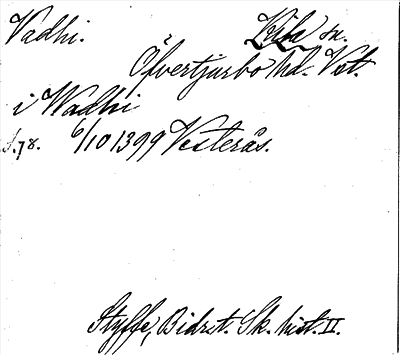 Vadhi. Kila sn.
Öfvertjurbo hd. Vst.
i Wadhi
s. 78. 6/10 1399 Vesterås.
Styffe, Bidr.t. Sk. hist. II.